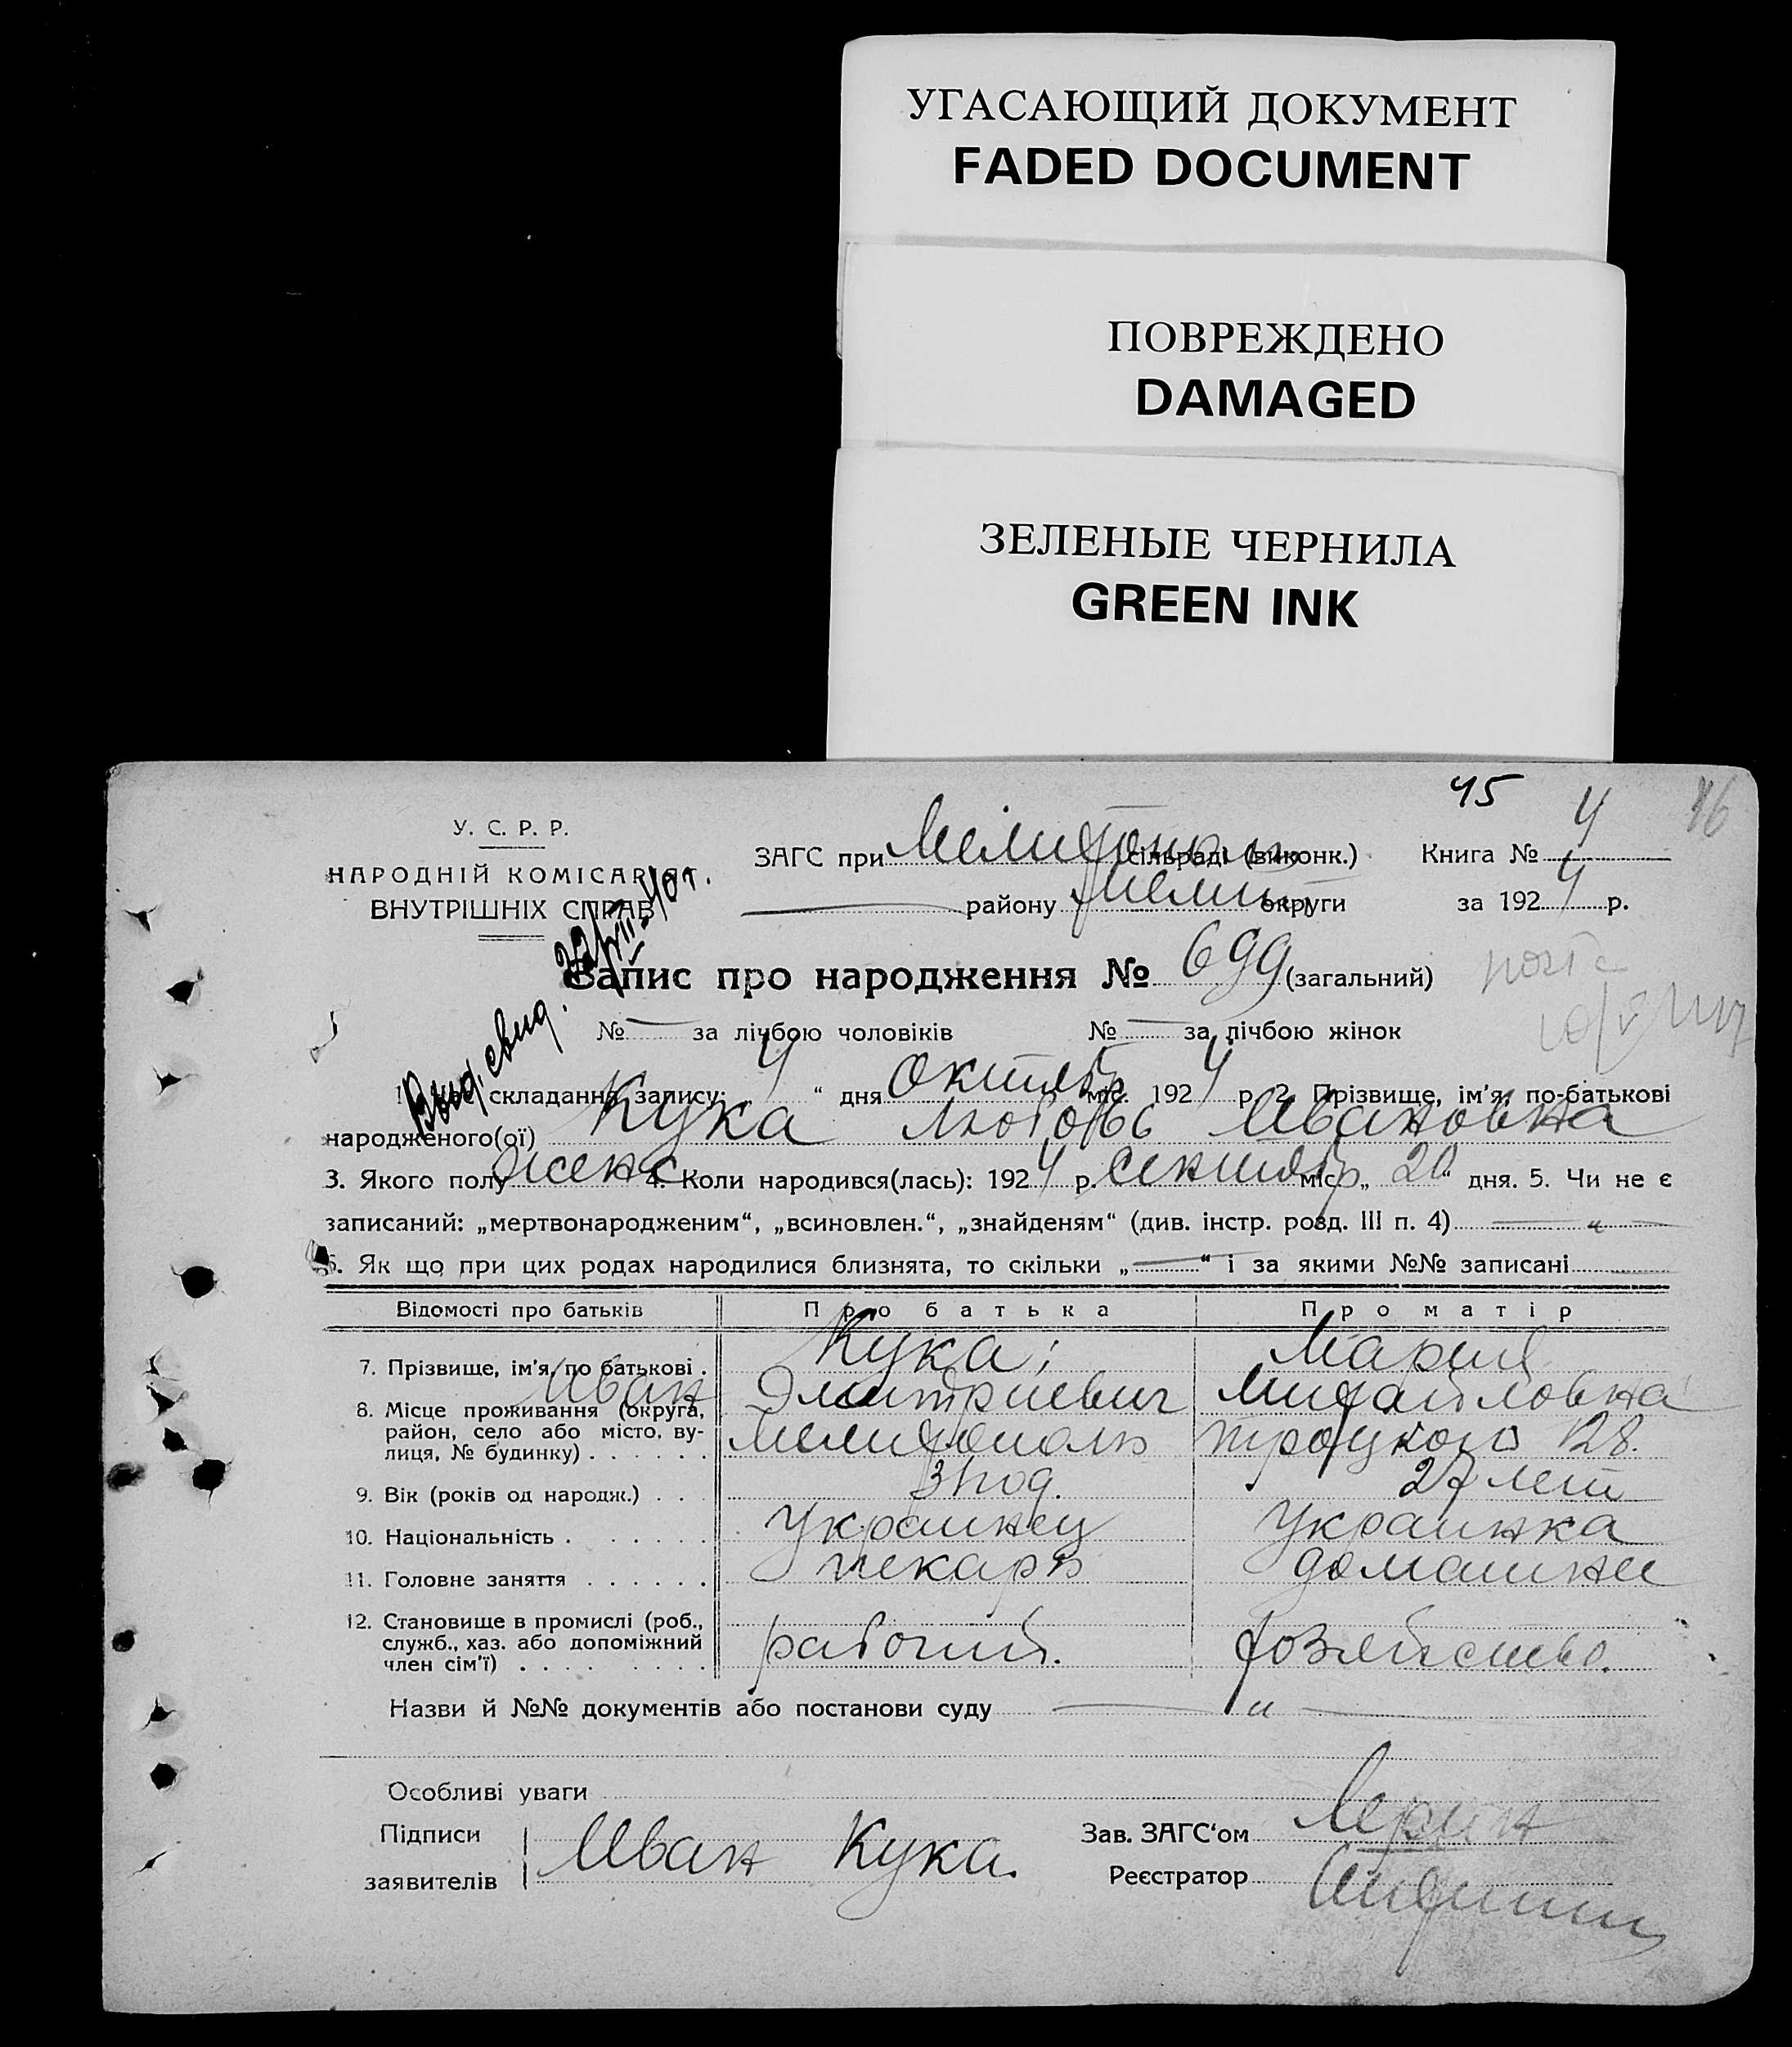 УГАСАЮЩИЙ ДОКУМЕНТ
FADED DOCUMENT
ПОВРЕЖДЕНО
DAMAGED
ЗЕЛЕНЫЕ ЧЕРНИЛА
GREEN INK
45 4 46
У. С. Р. Р.
НАРОДНІЙ КОМІСАРІЯТ
ВНУТРІШНІХ СПРАВ
ЗАГС при Мелитополь сільраді (виконк.) Книга №
району Мелит округи за 1924 р.
Выд. свид.
Запис про народження № 699 (загальний)
№ — за лічбою чоловіків № — за лічбою жінок
складання запису: 4 “ дня октябр міс. 1924 р. 2. Прізвище, ім’я, по-батькові
народженого(ої) Кука Любовь Ивановна
3. Якого полу женс 4. Коли народився(лась): 1924 р. сентябр міс. „ 20 “ дня. 5. Чи не є
записаний: „мертвонародженим“, „всиновлен.“, „знайденям“ (див. інстр. розд. III п. 4) — „ —
6. Як що при цих родах народилися близнята, то скільки „ — “ і за якими №№ записані
Відомості про батьків Про батька Про матір
7. Прізвище, ім’я, по батькові . Кука; Мария
Иван Дмитриевич Михайловна
8. Місце проживання (округа,
район, село або місто, ву-
лиця, № будинку) . . . . . . Мелитополь Троцкого 128.
9. Вік (років од народж.) . . . 31 год. 27 лет
10. Національність . . . . . . Украинец Украинка
11. Головне заняття . . . . . . пекарь домашнее
12. Становище в промислі (роб.,
служб., хаз. або допоміжний
член сім’ї) . . . . . . . . рабочий. хозяйство.
Назви й №№ документів або постанови суду — „ —
Особливі уваги
Підписи
заявителів Иван Кука.
Зав. ЗАГС‘ом
Реєстратор